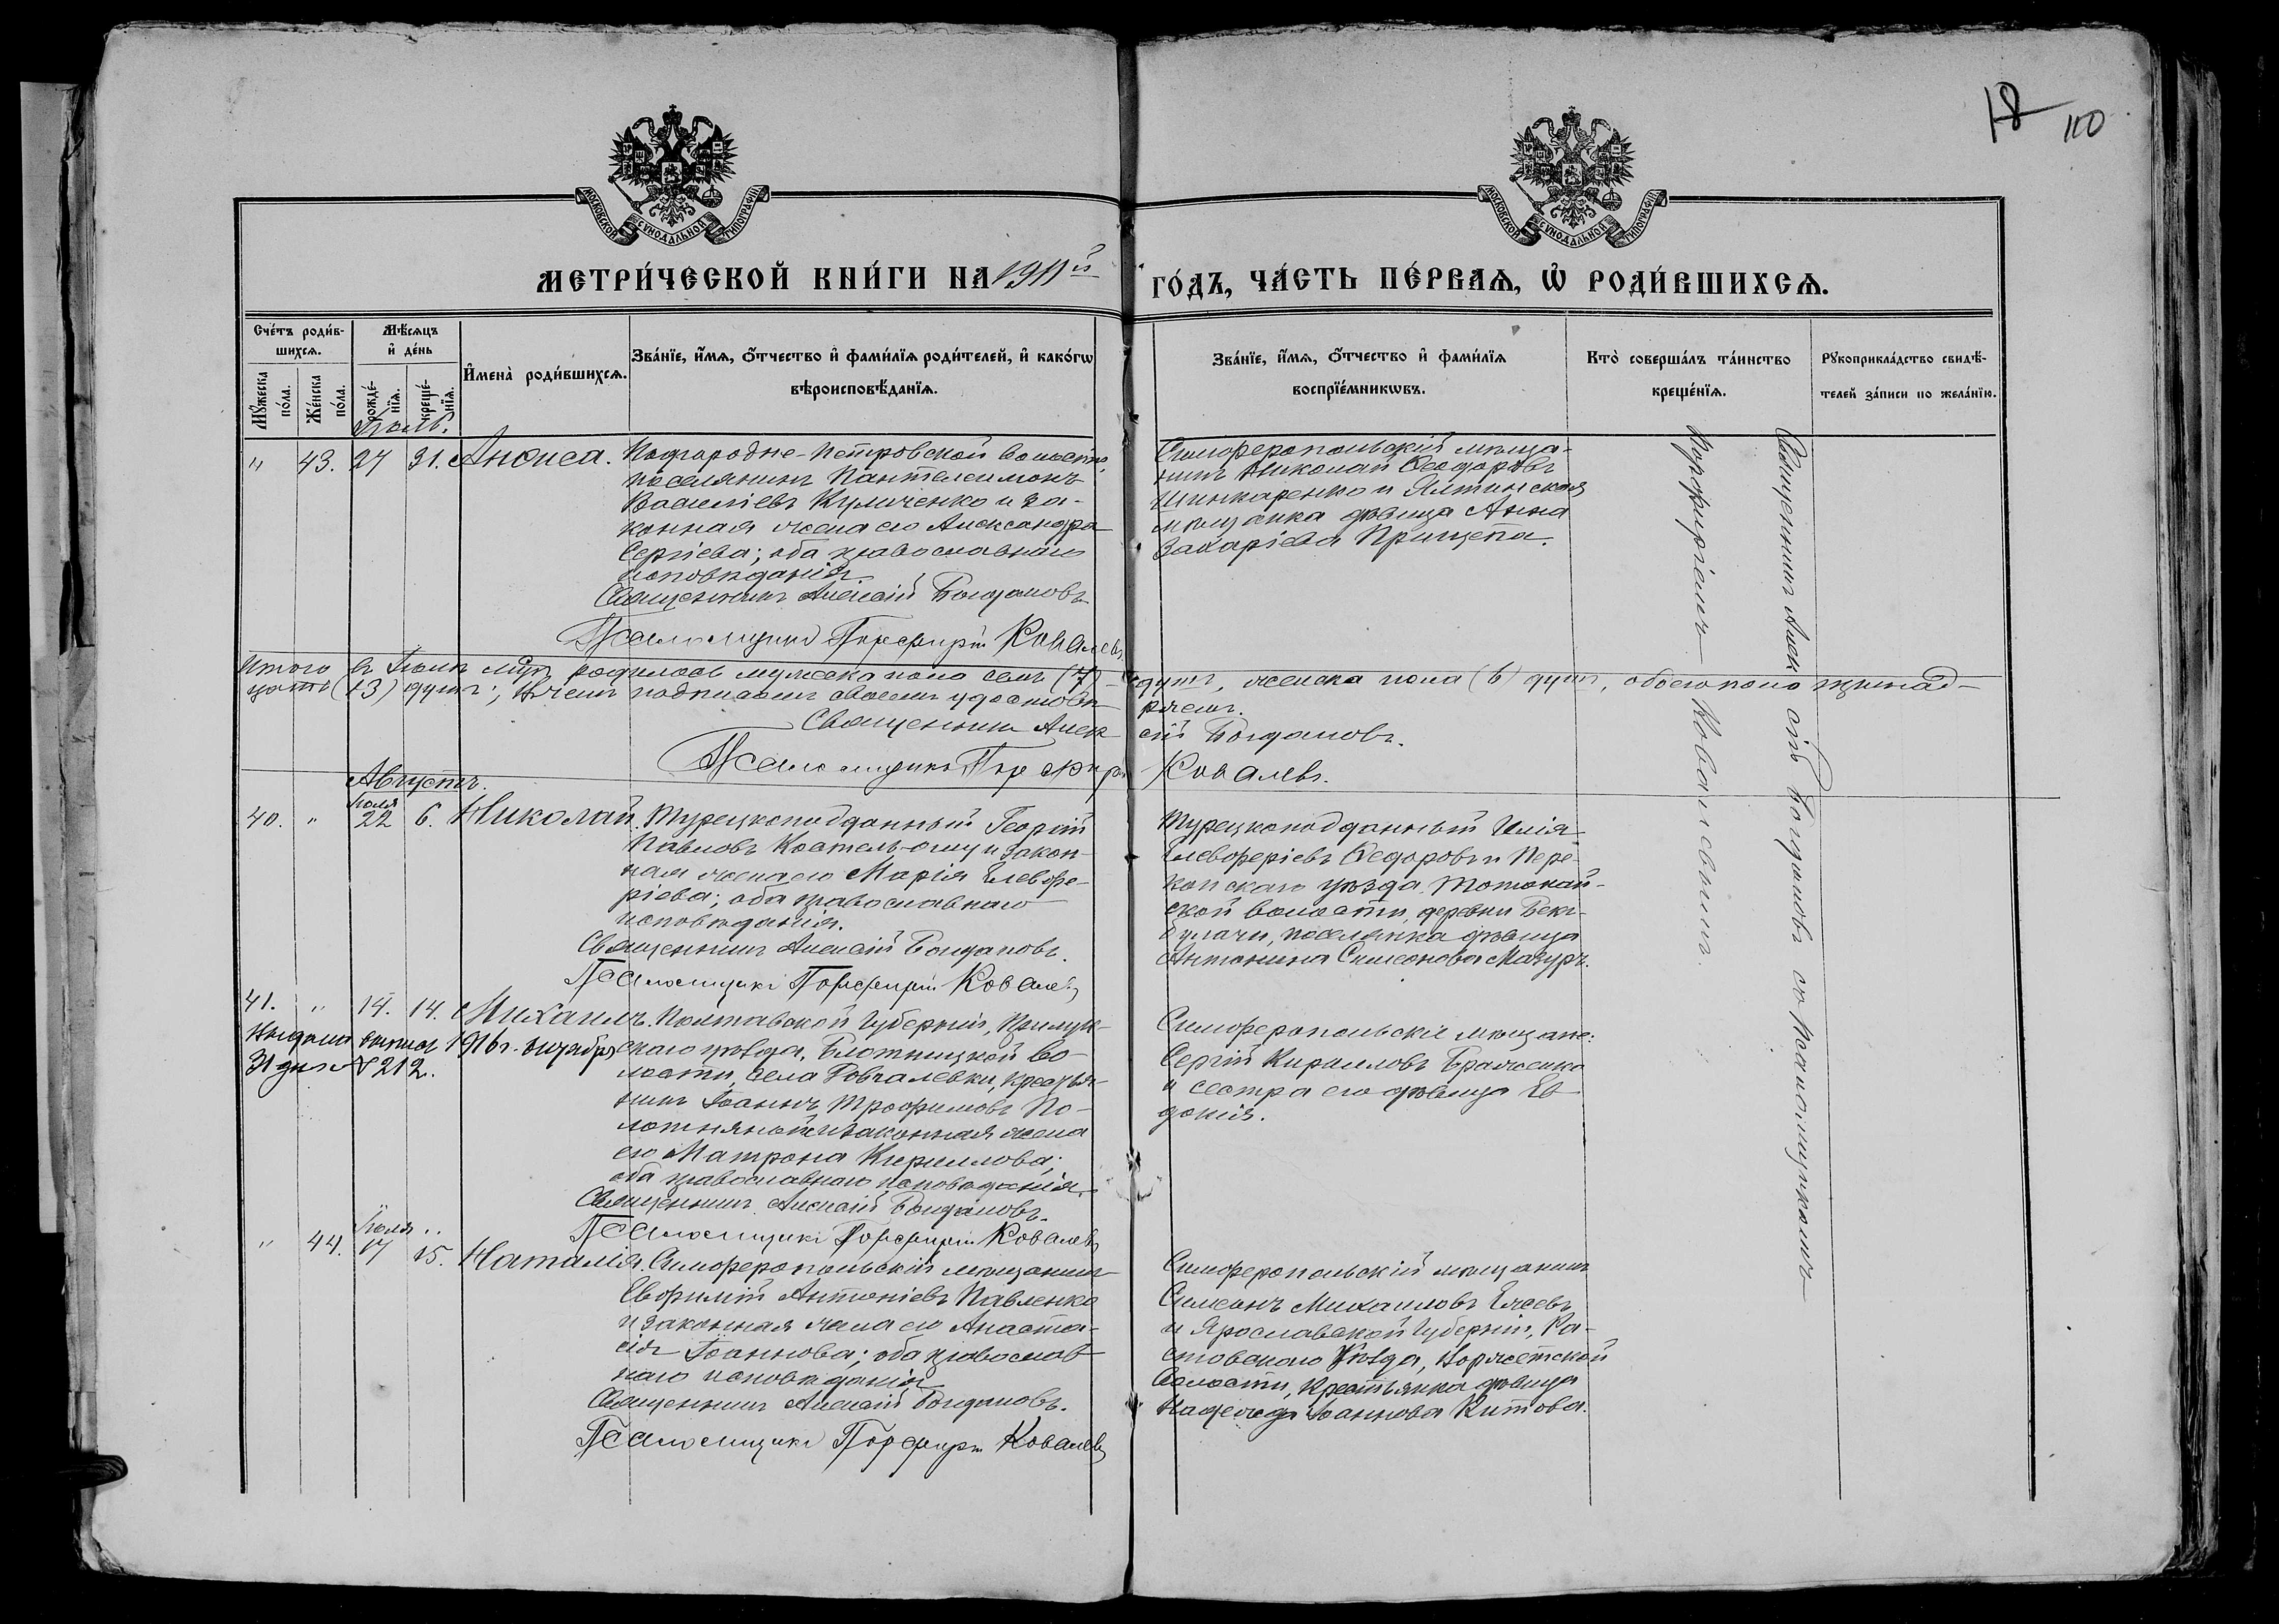 18 110
МОСКОВСКОЙ СѴНОДАЛЬНОЙ ТИПОГРАФІИ
МОСКОВСКОЙ СѴНОДАЛЬНОЙ ТИПОГРАФІИ
МЕТРИ́ЧЕСКОЙ КНИ́ГИ НА 1911й ГО́ДЪ, ЧА́СТЬ ПЕ́РВАѦ, Ѽ РОДИ́ВШИХСѦ.
Сче́тъ роди́в-
шихсѧ.
Мѣ́сѧцъ
и҆ де́нь
Мꙋ́жеска
по́ла.
Же́нска
по́ла.
рожде́-
нїѧ.
креще́-
нїѧ.
И҆мена̀ роди́вшихсѧ.
Зва́нїе, и҆́мѧ, ѻ҆́тчество и҆ фами́лїѧ роди́телей, и҆ како́гѡ
вѣроисповѣ́данїѧ.
Зва́нїе, и҆́мѧ, ѻ҆́тчество и҆ фами́лїѧ
воспрїе́мникѡвъ.
Кто̀ соверша́лъ та́инство
креще́нїѧ.
Рꙋкоприкла́дство свидѣ́-
телей за́писи по жела́нїю.
Іюль.
" 43. 27 31. Анѳиса. Подгородне-Петровской волости,
поселянинъ Пантелеимонъ
Василіевъ Куличенко и за-
конная жена его Александра
Сергіева; оба православнаго
исповѣданія.
Священникъ Алексій Богдановъ
Псаломщикъ Порфирій Ковалевъ
Симферопольскій мѣща-
нинъ Николай Ѳеодоровъ
Шинкаренко и Ялтинская
мѣщанка дѣвица Анна
Захаріева Прищепа.
Итого въ Іюлѣ мѣс. родилось мужеска пола семь (7) душъ, женска пола (6) душъ, обоего пола тринад-
цать (13) душъ; въ чемъ подписомъ своемъ удостовѣ-
ряемъ.
Священникъ Алексій Богдановъ.
Псаломщикъ Порфирій Ковалевъ.
Августъ.
40. " Іюля 22 6. Николай. Турецкоподданный Георгій
Павловъ Костель-оглу и закон-
ная жена его Марія Елевфе-
ріева; оба православнаго
исповѣданія.
Священникъ Алексій Богдановъ.
Псаломщикъ Порфирій Ковалевъ
Турецкоподданный Илія
Елевферіевъ Ѳедоровъ и Пере-
копскаго уѣзда, Тотонай-
ской волости, деревни Бекъ-
булачи, поселянка дѣвица
Антонина Симеонова Мазуръ.
41. " 14. 14. Михаилъ. Полтавской губерніи, Прилук-
скаго уѣзда,
волости, села Ровчалевки, крестья-
нинъ Іоаннъ Трофимовъ По-
лотняный и законная жена
его Матрона Кириллова;
оба православнаго исповѣданія.
Священникъ Алексій Богдановъ.
Псаломщикъ Порфирій Ковалевъ
1916г.
31 дня № 212.
Симферопольскіе мѣщане:
Сергій Кирилловъ Браженко
и сестра его дѣвица Ев-
докія.
" 44. Іюля 17 15. Наталія. Симферопольскій мѣщанинъ
Евфимій Антоніевъ Павленко
и законная жена его Анаста-
сія Іоаннова; оба православ-
наго исповѣданія
Священникъ Алексій Богдановъ.
Псаломщикъ Порфирій Ковалевъ
Симферопольскій мѣщанинъ
Симеонъ Михаиловъ Ежевъ
и Ярославской губерніи, Ро-
стовскаго уѣзда,
волости, крестьянка дѣвица
Надежда Іоаннова Китова.
Священникъ Алексій Богдановъ съ псаломщикомъ
Порфиріемъ Ковалевымъ.